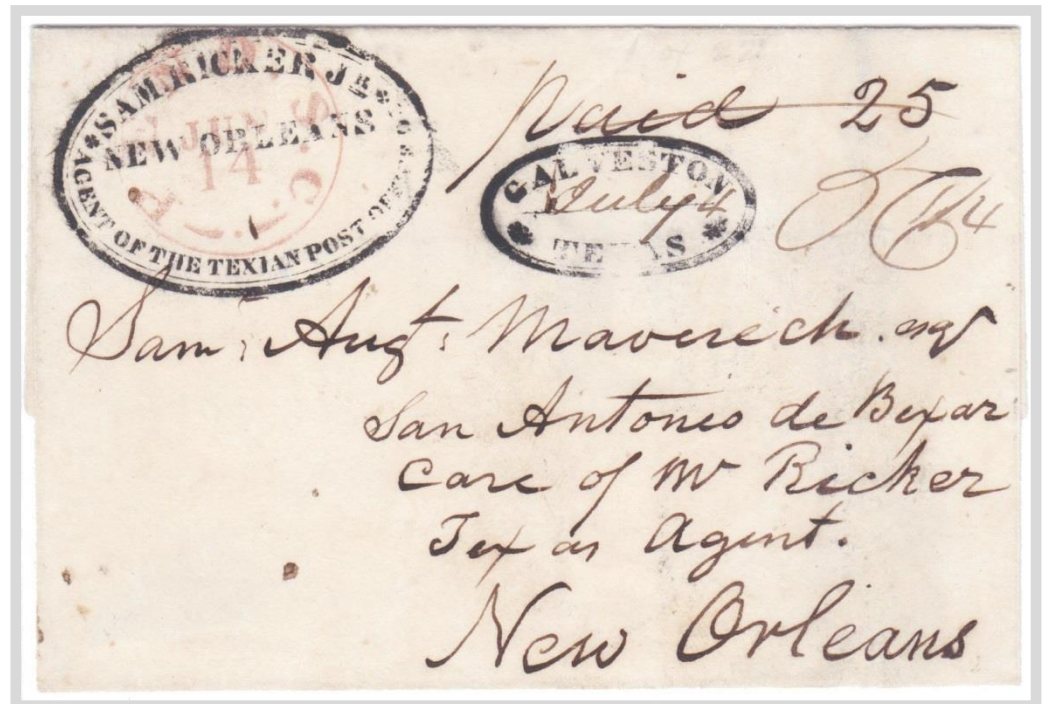 ★ SAM. RICKER JR. ★
NEW ORLEANS
AGENT OF THE TEXIAN POST OFFICE
JUN
14
S. C.
Paid 25
GALVESTON
July 4
TEXAS
Sam: Augt: Maverick esqr
San Antonio de Bexar
Care of Mr Ricker
Texas Agent.
New Orleans